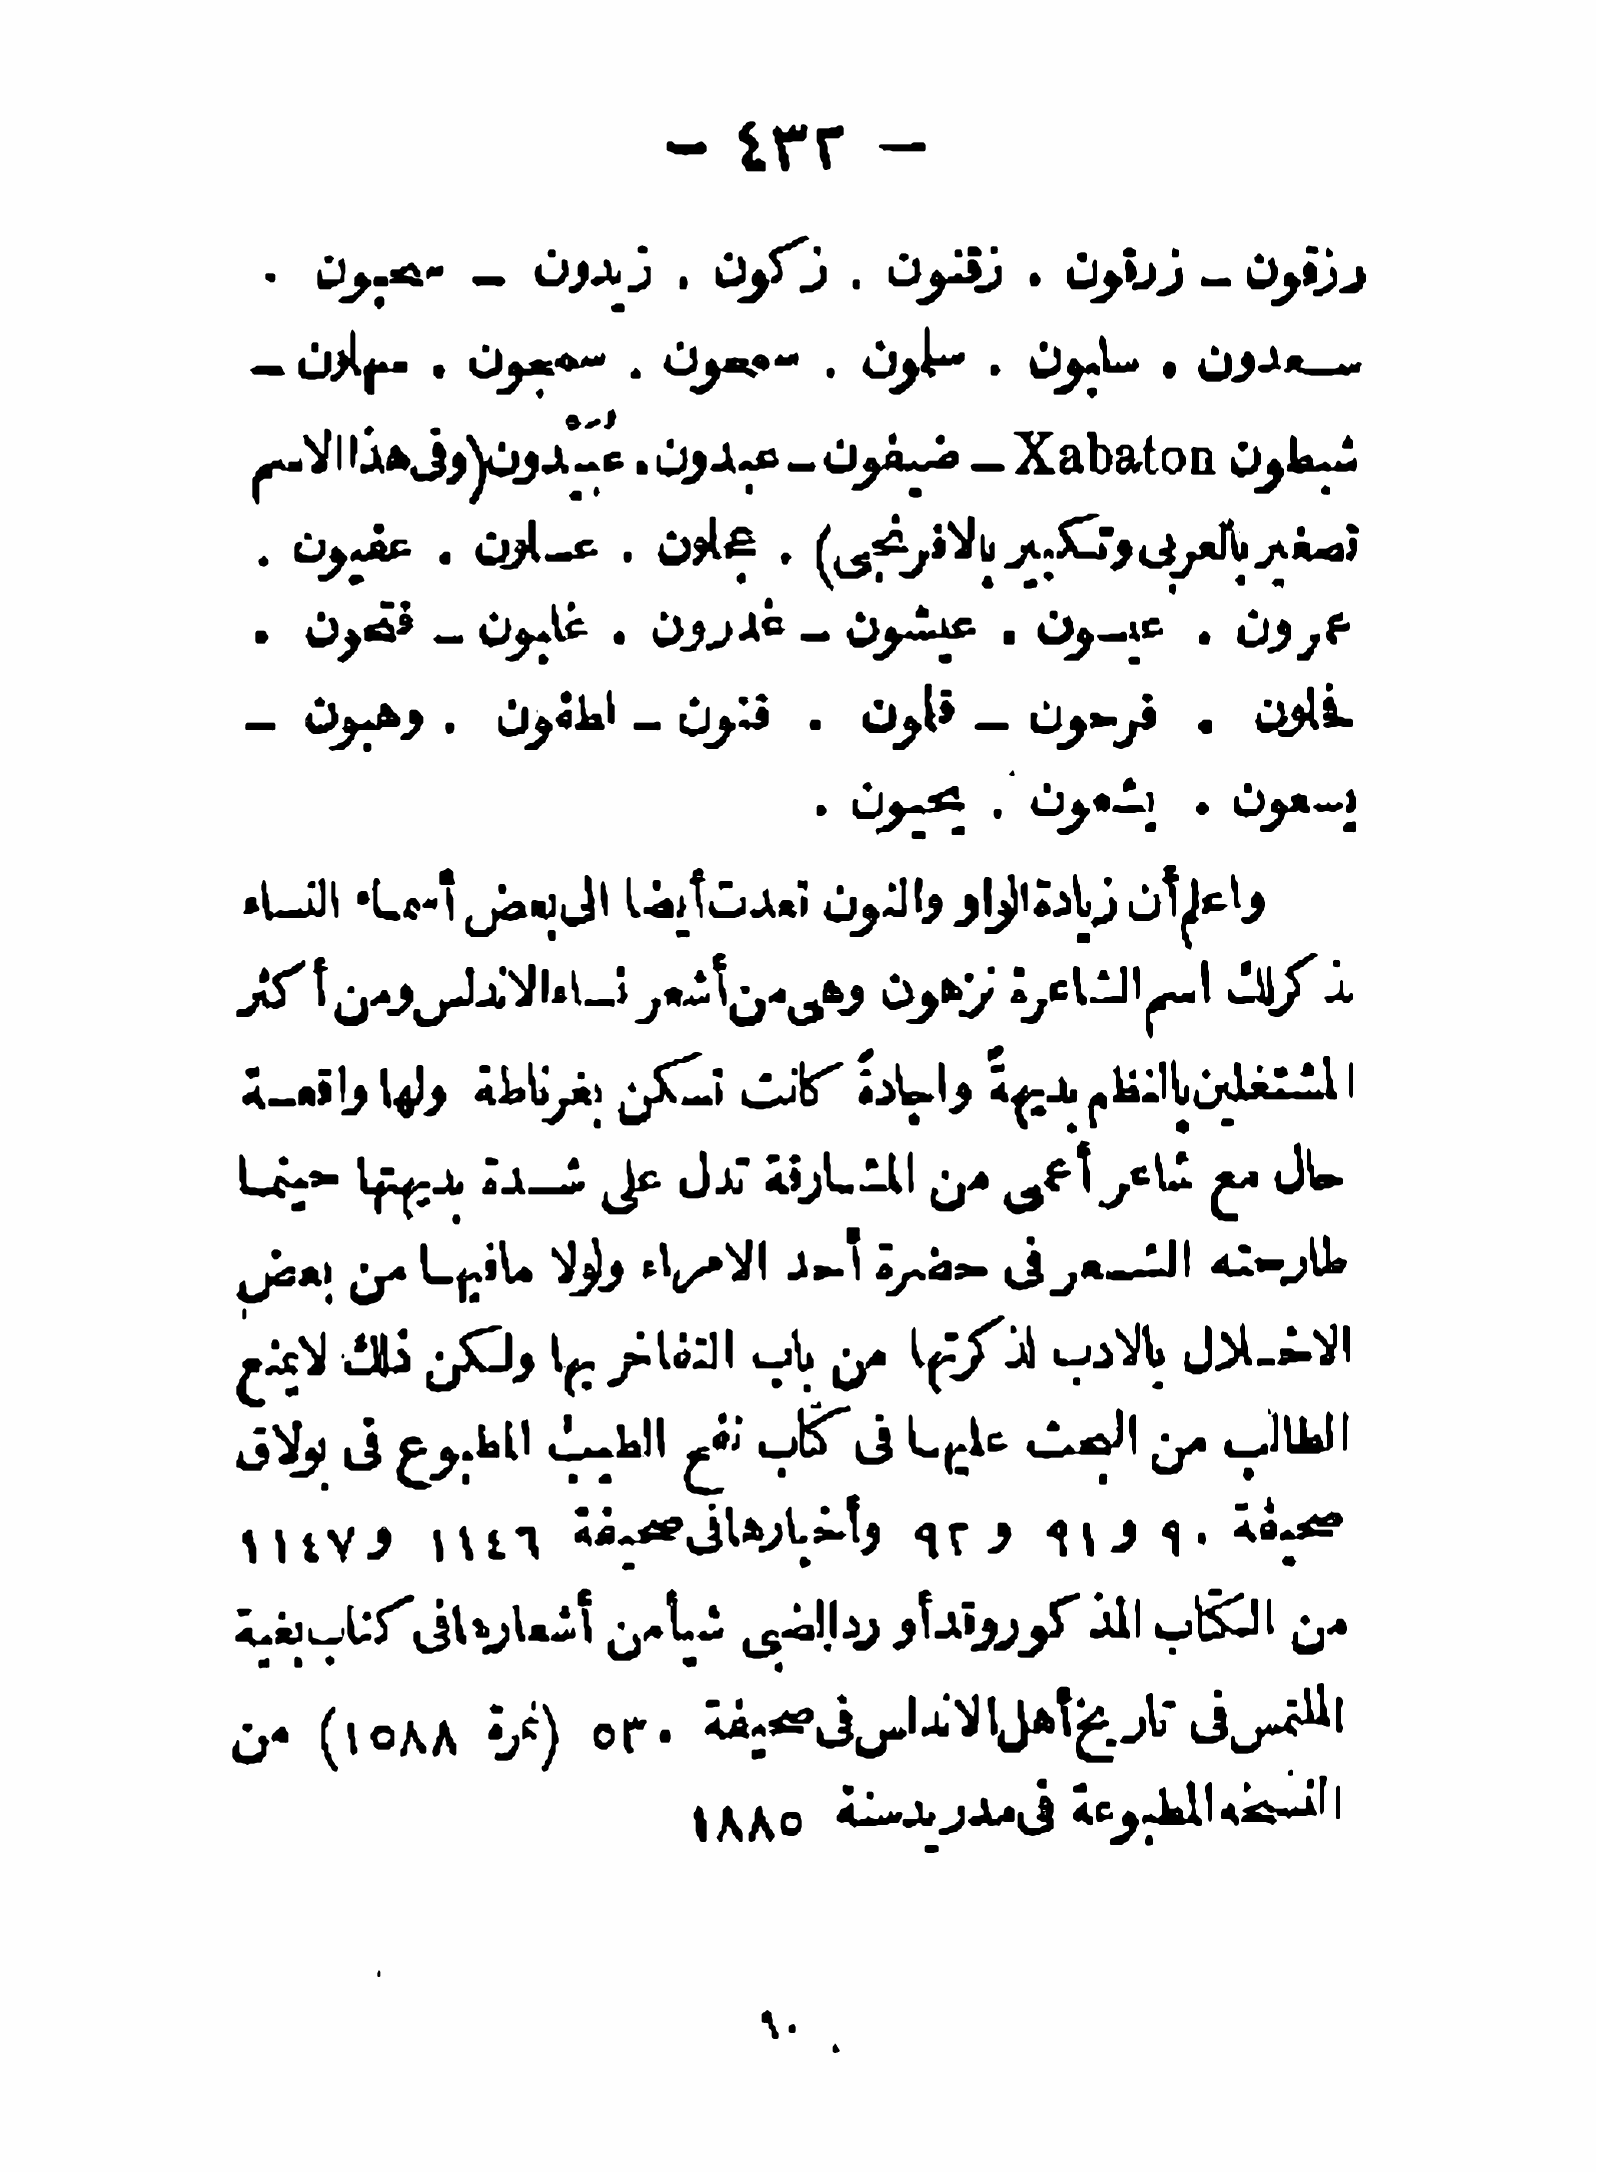 — ٤٣٢ —
رزقون — زرقون . زقنون . زكون . زيدون — سحبون .
سعدون . سلبون . سلمون . سمحون . سمجون . سهلون —
شبطون Xabaton — ضيفون — عبدون . عُبَيْدون (وفى هذا الاسم
تصغير بالعربى وتكبير بالافرنجى) . عجلون . عسلون . عفيون .
عمرون . عيسون . عيشون — غدرون . غلبون — فتحون .
فحلون . فرحون — قلون . قنون — لطفون . وهبون —
يسعون . يشعون . يحيون .
واعلم أن زيادة الواو والنون تعدت أيضا الى بعض أسماء النساء
نذكر لك اسم الشاعرة نزهون وهى من أشعر نساء الاندلس ومن أكثر
المشتغلين بالنظم بديهةً واجادةً كانت تسكن بغرناطة ولها واقعة
حال مع شاعر أعمى من المشارقة تدل على شدة بديهتها حينما
طارحته الشعر فى حضرة أحد الامراء ولولا مافيها من بعض
الاخلال بالادب لذكرتها من باب التفاخر بها ولكن ذلك لايمنع
الطالب من البحث عليها فى كتاب نفح الطيب المطبوع فى بولاق
صحيفة ٩٠ و ٩١ و ٩٢ وأخبارها فى صحيفة ١١٤٦ و ١١٤٧
من الكتاب المذكور وقد أورد الضبى شيأ من أشعارها فى كتاب بغية
الملتمس فى تاريخ أهل الاندلس فى صحيفة ٥٣٠ (نمرة ١٥٨٨) من
النسخه المطبوعة فى مدريد سنة ١٨٨٥
٩٠